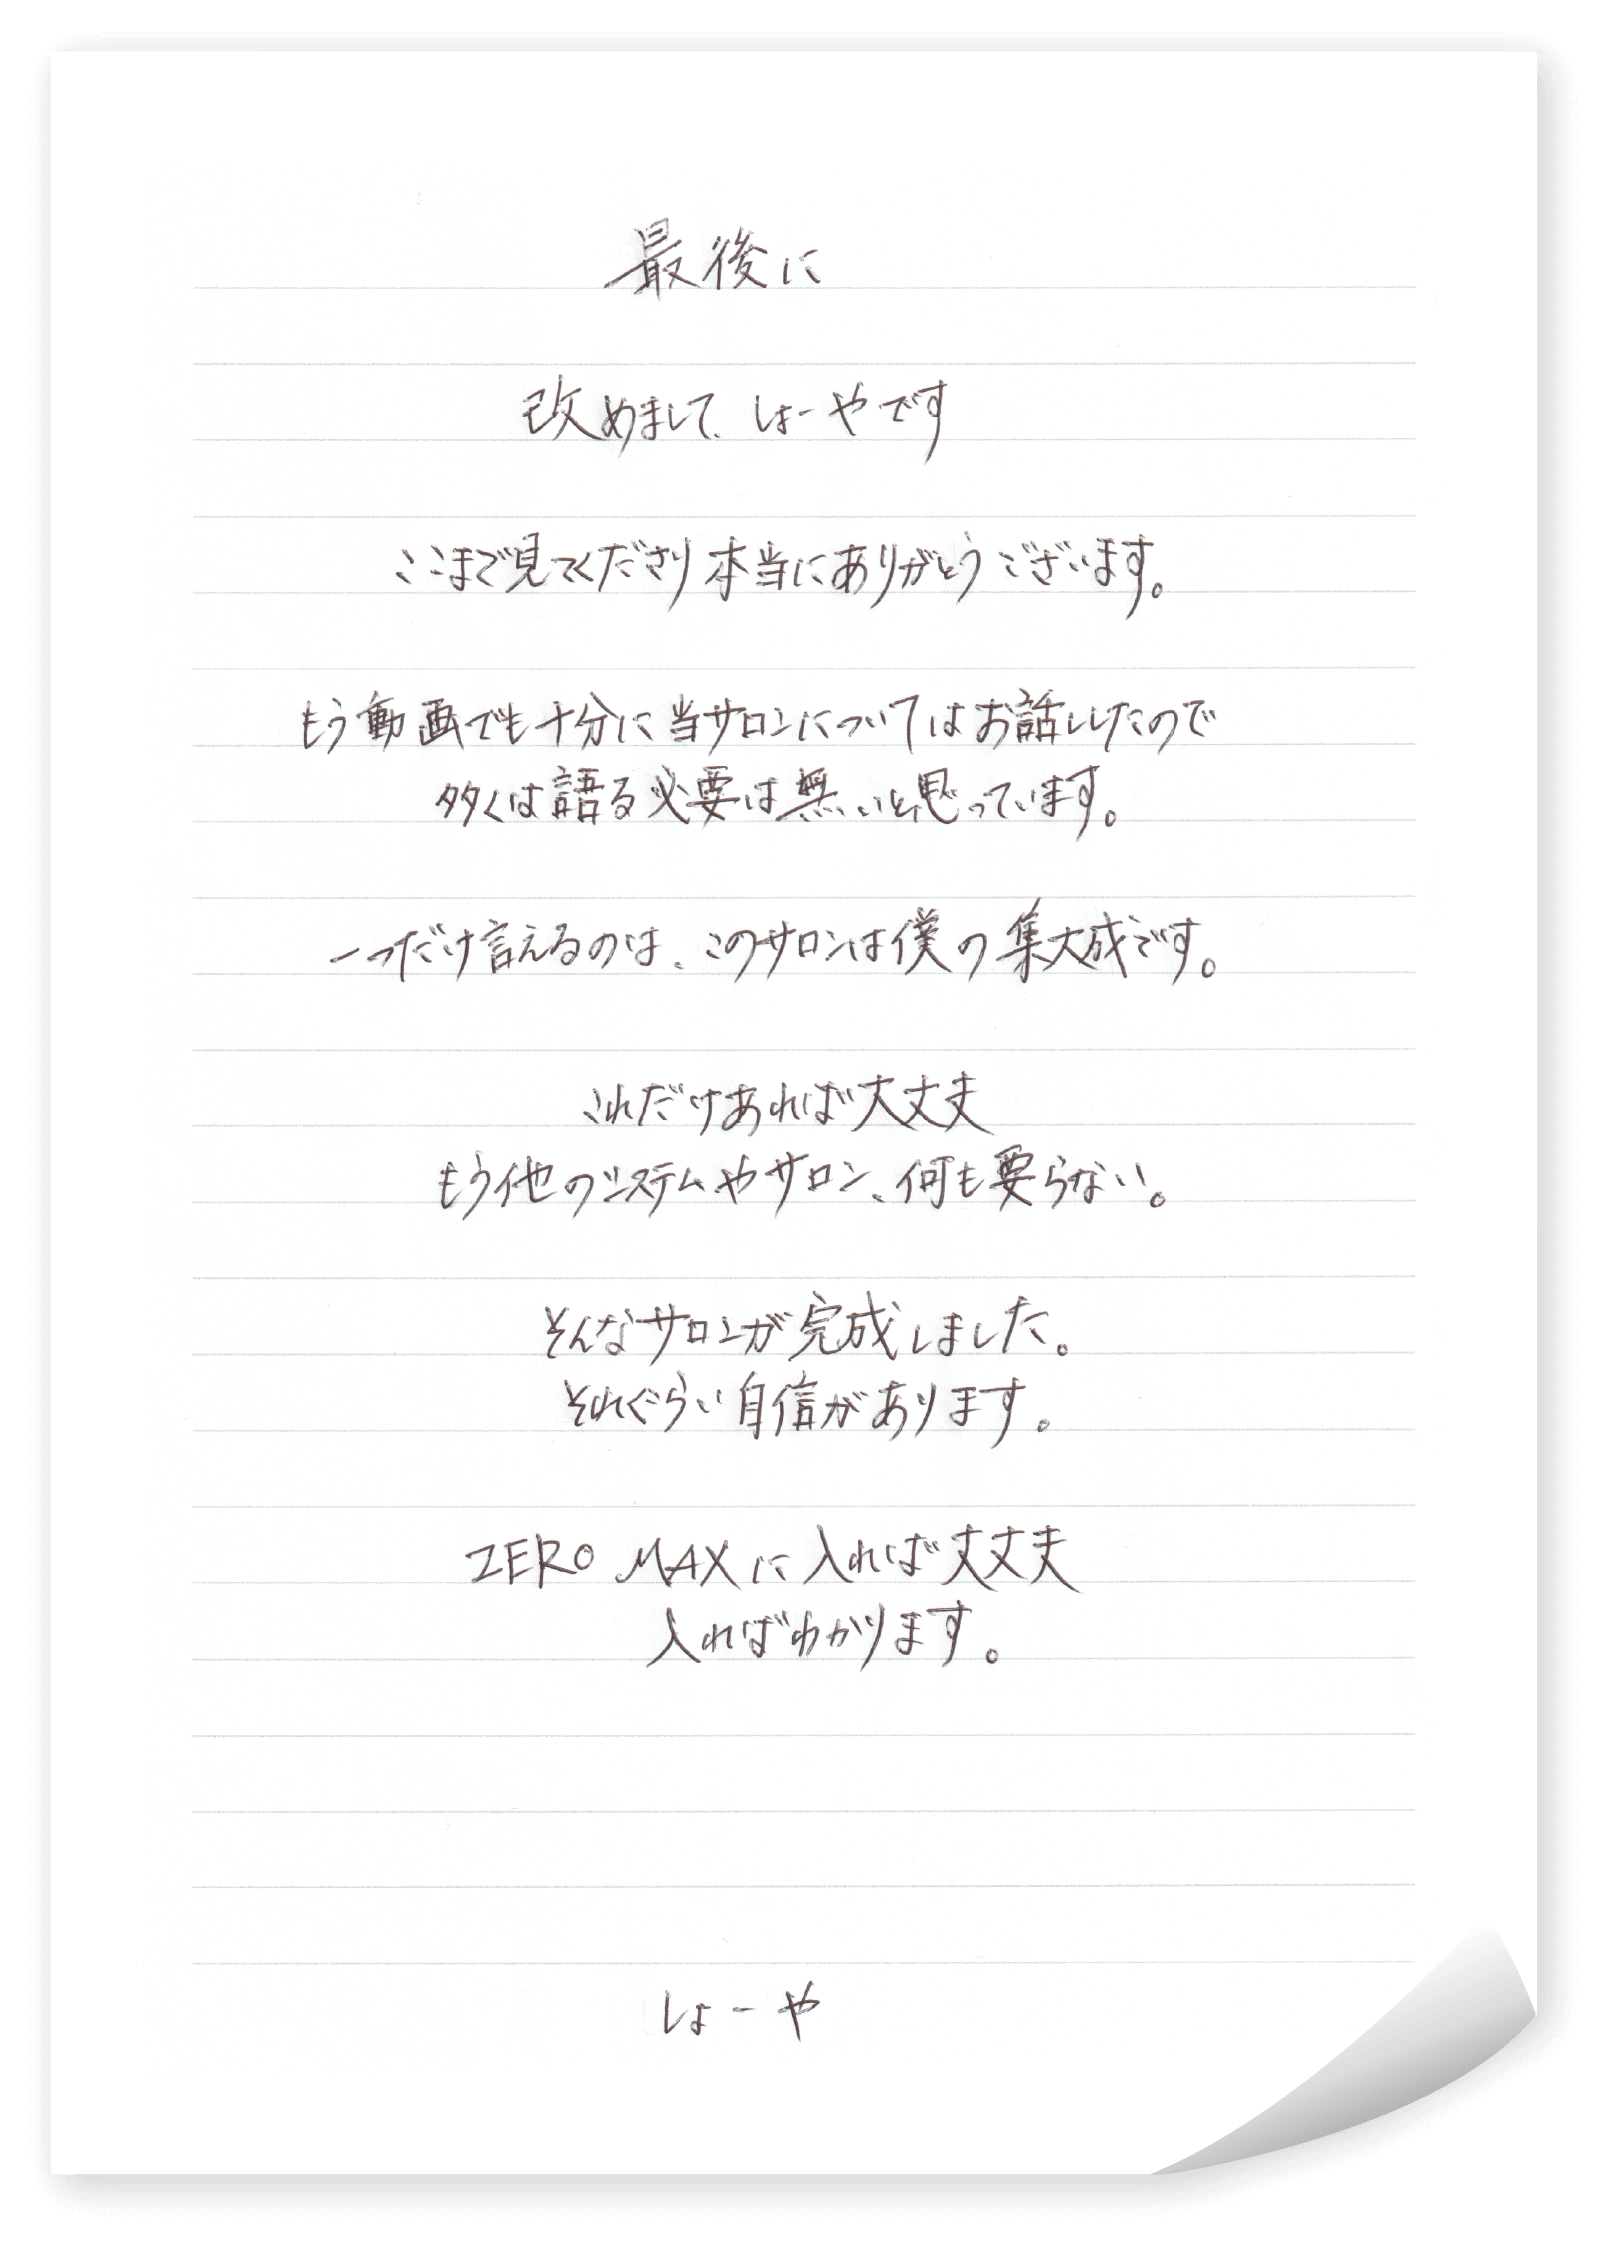 最後に
改めまして、しょーやです
ここまで見てくださり本当にありがとうございます。
もう動画でも十分に当サロンについてはお話ししたので
多くは語る必要は無いと思っています。
一つだけ言えるのは、このサロンは僕の集大成です。
これだけあれば大丈夫
もう他のシステムやサロン、何も要らない。
そんなサロンが完成しました。
それぐらい自信があります。
ZERO MAXに入れば丈丈夫
入ればわかります。
しょーや